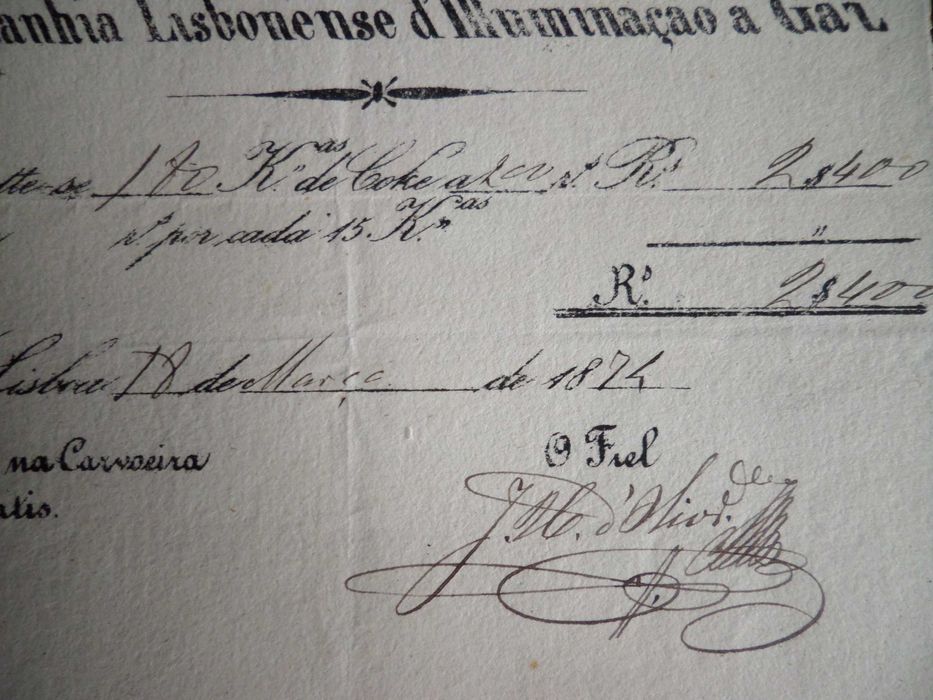 anhia Lisbonense d'Illuminação a Gaz
tte-se 180 K.ᵃˢ de Coke a 200 r.ˢ R.ˢ 2$400
r.ˢ por cada 15 K.ᵃˢ "
R.ˢ 2$400
Lisboa 18 de Março de 1874
na Carvoeira O Fiel
atis.
J.